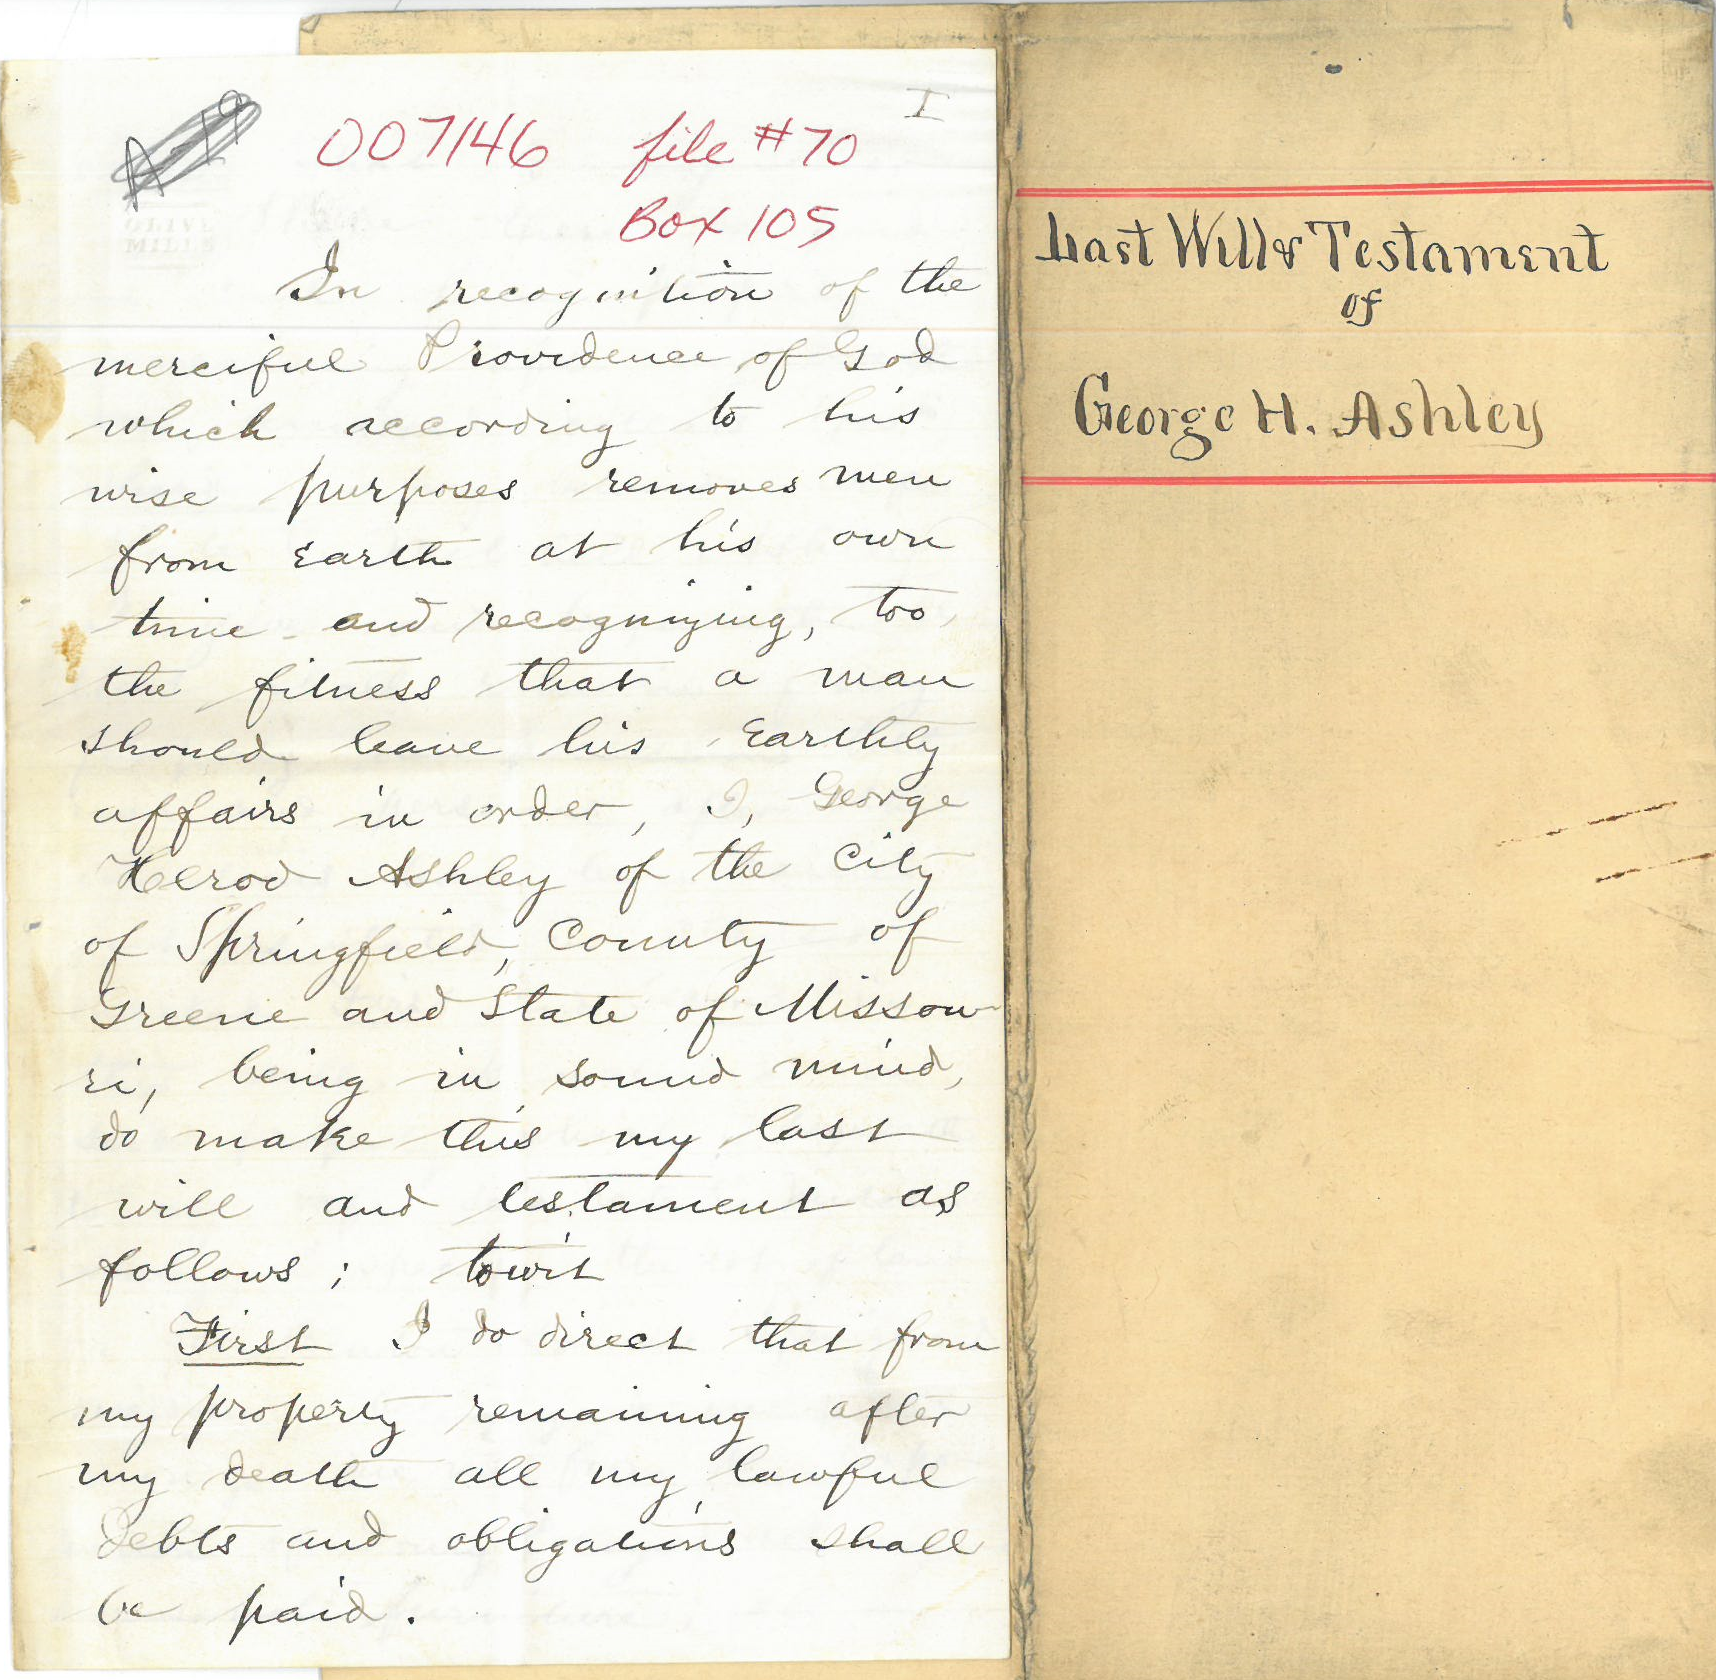 I
007146 file #70
Box 105
OLIVE
MILLS
In recognition of the
merciful Providence of God
which according to his
wise purposes removes men
from Earth at his own
time and recognizing, too,
the fitness that a man
should leave his Earthly
affairs in order, I, George
Herod Ashley of the City
of Springfield, County of
Greene and State of Missou-
ri, being in sound mind,
do make this my last
will and testament as
follows; towit
First I do direct that from
my property remaining after
my death all my lawful
debts and obligations shall
be paid.
Last Will & Testament
of
George H. Ashley